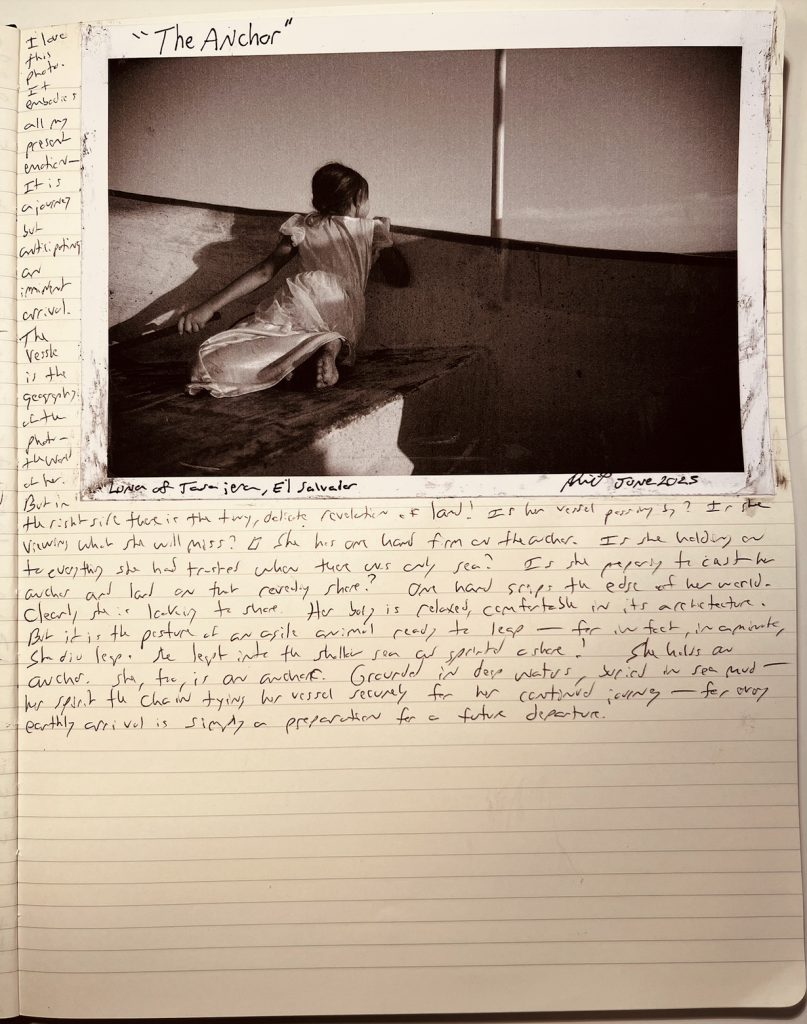 "The Anchor"
I love
this
photo.
It
embodies
all my
present
emotion—
It is
a journey
but
anticipating
an
imminent
arrival.
The
Vessle
is the
geography
of the
photo—
the world
of her.
But in
Luna of Tasajera, El Salvador
June 2025
the right side there is the tiny, delicate revelation of land! Is her vessel passing by? Is she
viewing what she will miss? She has one hand firm on the anchor. Is she holding on
to everything she had trusted when there was only sea? Is she preparing to cast her
anchor and land on that revealing shore? One hand grips the edge of her world.
Clearly she is looking to shore. Her body is relaxed, comfortable in its architecture.
But it is the posture of an agile animal ready to leap — for in fact, in a minute,
She did leap. She lept into the shallow sea and sprinted ashore! She holds an
anchor. She, too, is an anchor. Grounded in deep waters, buried in sea mud —
her spirit the chain tying her vessel securely for her continued journey — for every
earthly arrival is simply a preparation for a future departure.